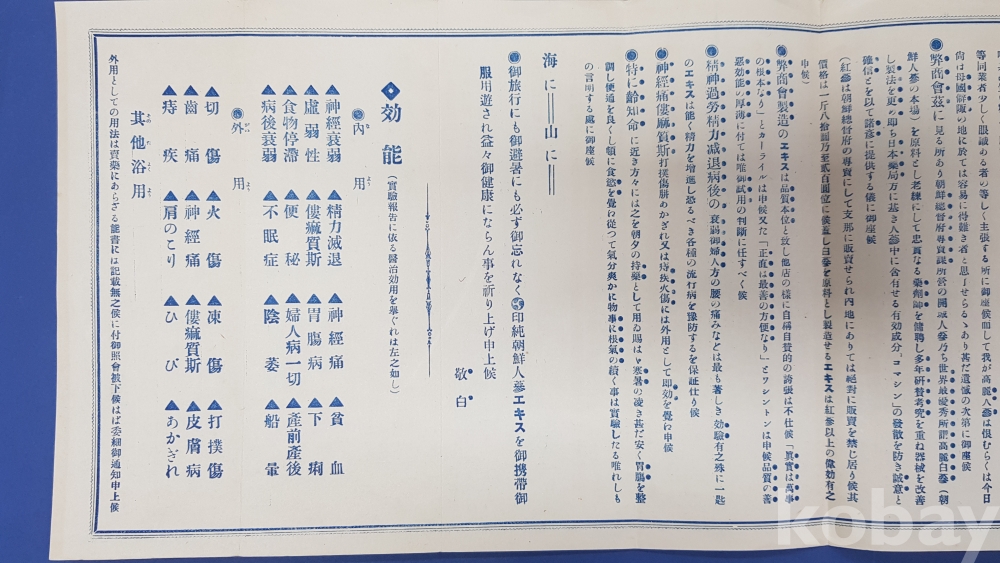 等同業者少しく眼識ある者の等しく主張する所に御座候而して我が高麗人蔘は恨むらくは今日
向は母國解阪の地に於ては容易に得難き者と思了せらるゝあり甚だ遺憾の次第に御座候
弊商會茲に見る所あり朝鮮總督府專賣課所營の開城人蔘乃ち世界最優秀所謂高麗白蔘(朝
鮮人蔘の本場)を原料とし老練にして忠實なる藥劑師を傭聘し多年研賛考究を重ね器械を改善
し製法を更め卽ち日本藥局方に基き人蔘中に含有せる有効成分「コマシン」の發散を防ぎ誠意と
確信とを以て諸彦に提供する儀に御座候
(紅蔘は朝鮮總督府の專賣にして支那に販賣せられ內地にありては絕對に販賣を禁じ居り候其
價格は一斤八拾圓乃至貳百圓位に候蓋し白蔘を原料とし製造せるエキスは紅蔘以上の偉効有之
申候)
弊商會製造のエキスは品質本位と致し他店の樣に自稱自賛的の誇張は不仕候「眞實は萬事
の根本なり」とカーライルは申候又た「正直は最善の方便なり」とワシントンは申候品質の善
惡効能の厚薄に付ては唯御試用の判斷に任すべく候
精神過勞精力減退病後の衰弱御婦人方の腰の痛みなどは最も著しき効驗有之殊に一匙
のエキスは能く精力を增進し恐るべき各種の流行病を豫防するを保証仕り候
神經痛僂麻質斯打撲傷胼あかぎれ又は痔疾火傷には外用として卽効を覺ね申候
特に齡知命に近き方々には之を朝夕の持藥として用ゐ賜はゞ寒暑の凌き甚だ安く胃腸を整
調し便通を良くし頓に食慾を覺ね從つて氣分爽かに物事に根氣の續く事は實驗したる唯れしも
の言明する處に御座候
海に══山に══
御旅行にも御避暑にも必ず御忘れなく印純朝鮮人蔘エキスを御携帶御
服用遊され益々御健康にならん事を祈り上げ申上候
敬白
◈効能 (實驗報告に依る醫治効用を擧ぐれは左之如し)
內用
▲神經衰弱 ▲精力減退 ▲神經痛 ▲貧血
▲虛弱性 ▲僂痲質斯 ▲胃腸病 ▲下痢
▲食物停滯 ▲便秘 ▲婦人病一切 ▲產前產後
▲病後衰弱 ▲不眠症 ▲陰萎 ▲船暈
外用
▲切傷 ▲火傷 ▲凍傷 ▲打撲傷
▲齒痛 ▲神經痛 ▲僂痲質斯 ▲皮膚病
▲痔疾 ▲肩のこり ▲ひび ▲あかぎれ
其他浴用
外用としての用法は賣藥にあらざる能書には記載無之候に付御照會被下候はば委細御通知申上候
kobay